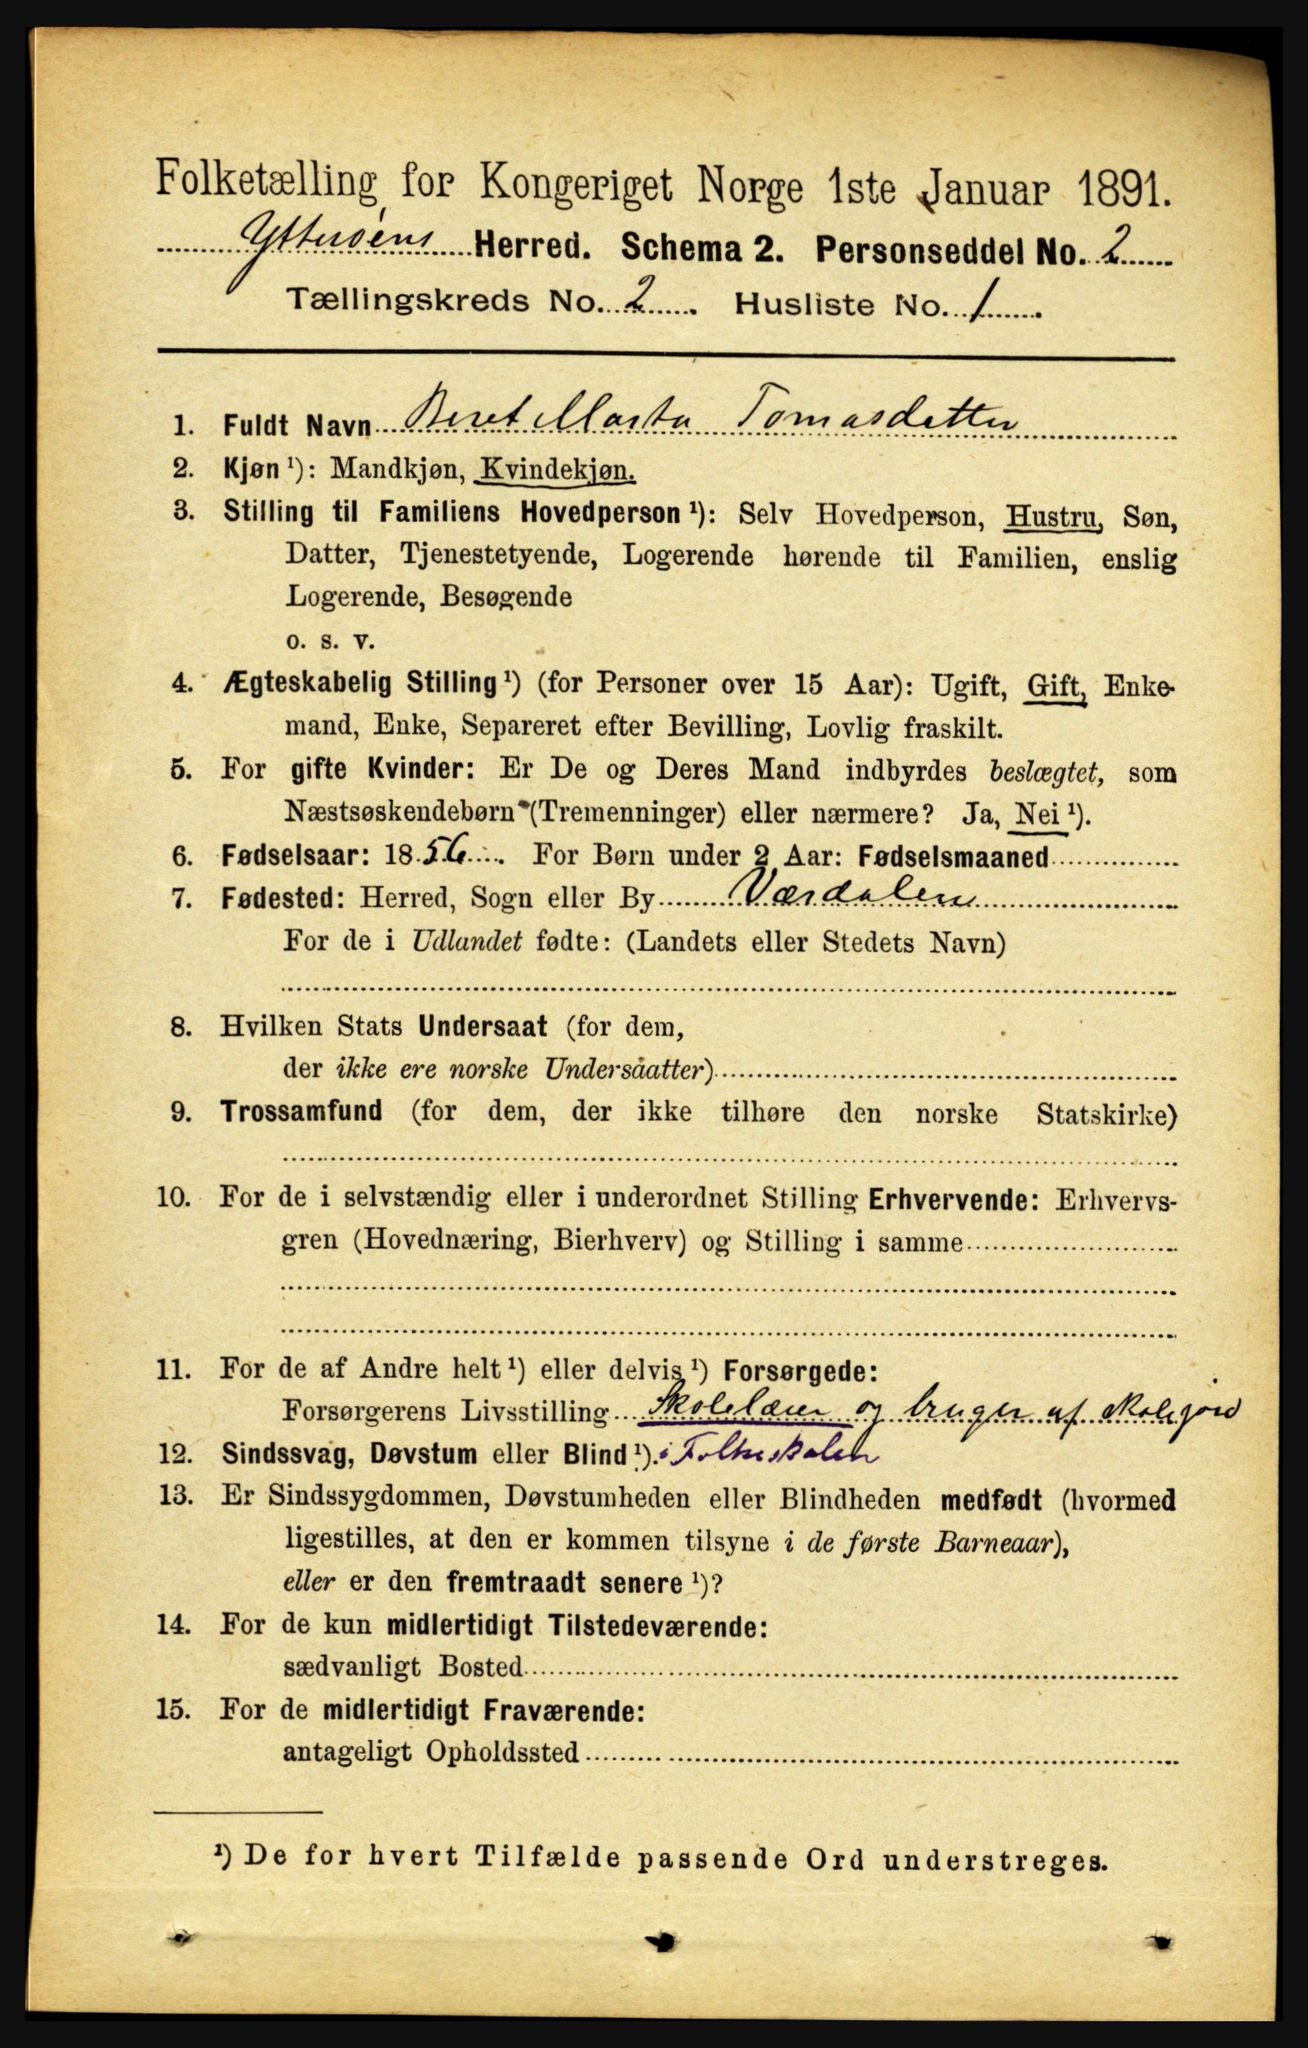 Folketælling for Kongeriget Norge 1ste Januar 1891.
Ytterøens Herred. Schema 2. Personseddel No. 2
Tællingskreds No. 2. Husliste No. 1.
1. Fuldt Navn Beret Marta Tomasdatter
2. Kjøn ¹): Mandkjøn, Kvindekjøn.
3. Stilling til Familiens Hovedperson ¹): Selv Hovedperson, Hustru, Søn,
Datter, Tjenestetyende, Logerende hørende til Familien, enslig
Logerende, Besøgende
o. s. v.
4. Ægteskabelig Stilling ¹) (for Personer over 15 Aar): Ugift, Gift, Enke-
mand, Enke, Separeret efter Bevilling, Lovlig fraskilt.
5. For gifte Kvinder: Er De og Deres Mand indbyrdes beslægtet, som
Næstsøskendebørn (Tremenninger) eller nærmere? Ja, Nei ¹).
6. Fødselsaar: 1856. For Børn under 2 Aar: Fødselsmaaned
7. Fødested: Herred, Sogn eller By Værdalen
For de i Udlandet fødte: (Landets eller Stedets Navn)
8. Hvilken Stats Undersaat (for dem,
der ikke ere norske Undersaatter)
9. Trossamfund (for dem, der ikke tilhøre den norske Statskirke)
10. For de i selvstændig eller i underordnet Stilling Erhvervende: Erhvervs-
gren (Hovednæring, Bierhverv) og Stilling i samme
11. For de af Andre helt ¹) eller delvis ¹) Forsørgede:
Forsørgerens Livsstilling Skolelærer og bruger af skolejord
12. Sindssvag, Døvstum eller Blind ¹). i Folkeskolen
13. Er Sindssygdommen, Døvstumheden eller Blindheden medfødt (hvormed
ligestilles, at den er kommen tilsyne i de første Barneaar),
eller er den fremtraadt senere ¹)?
14. For de kun midlertidigt Tilstedeværende:
sædvanligt Bosted
15. For de midlertidigt Fraværende:
antageligt Opholdssted
¹) De for hvert Tilfælde passende Ord understreges.